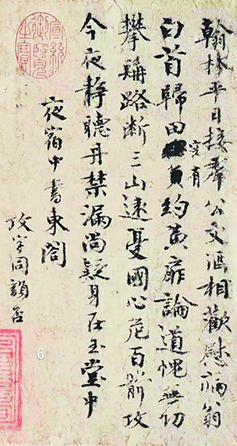 翰林平日接羣公文酒相歡慰病翁
白首歸田空有約黃扉論道愧無功
攀髯路斷三山遠憂國心危百箭攻
今夜靜聽丹禁漏尚疑身在玉堂中
夜宿中書東閣
攻字同韻否
宣統御覽之寶